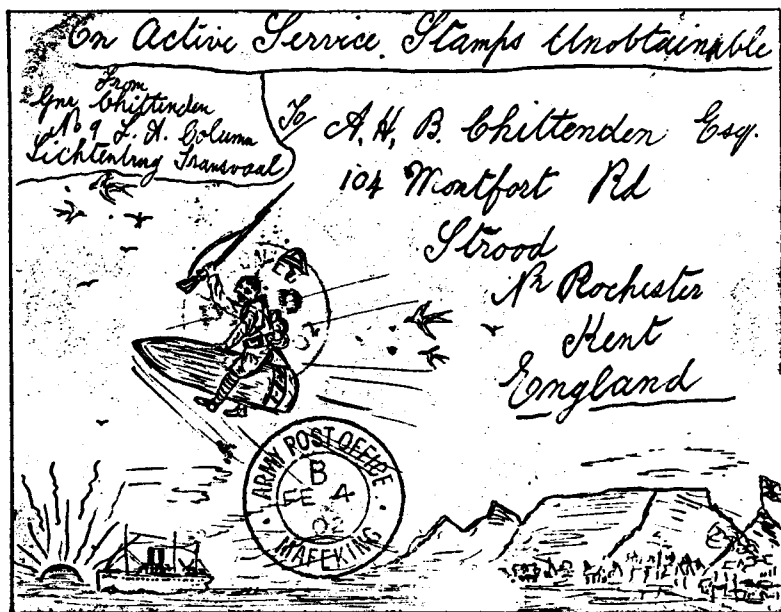 On Active Service. Stamps Unobtainable
From
Gnr Chittenden
No 9 L. H. Column
Lichtenburg Transvaal
To A. H. B. Chittenden Esq.
104 Montfort Rd
Strood
Nr Rochester
Kent
England
ARMY POST OFFICE
B
FE 4
02
MAFEKING